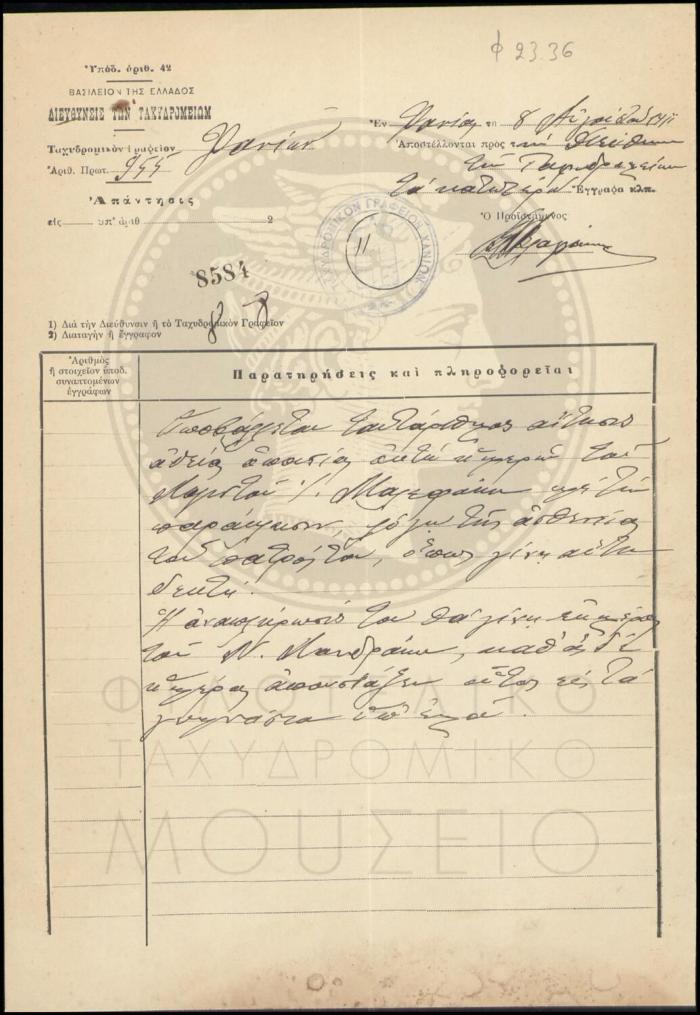 φ 23.36
Ὑπόδ. ἀριθ. 42
ΒΑΣΙΛΕΙΟΝ ΤΗΣ ΕΛΛΑΔΟΣ
ΔΙΕΥΘΥΝΣΙΣ ΤΩΝ ΤΑΧΥΔΡΟΜΕΙΩΝ
Ταχυδρομικὸν Γραφεῖον Χανίων
Ἀριθ. Πρωτ. 955
Ἀπάντησις
εἰς ὑπ' ἀριθ 2
Ἐν Χανίοις τῇ 8
Ἀποστέλλονται πρὸς τὴν Διεύθυνσιν
τῶν Ταχυδρομείων
τὰ κατωτέρω Ἔγγραφα κλπ.
Ὁ Προϊστάμενος
ΤΑΧΥΔΡΟΜΙΚΟΝ ΓΡΑΦΕΙΟΝ ΧΑΝΙΩΝ
11
8584
1) Διὰ τὴν Διεύθυνσιν ἢ τὸ Ταχυδρομικὸν Γραφεῖον
2) Διαταγὴν ἢ ἔγγραφον
Ἀριθμὸς
ἢ στοιχεῖον ὑποδ.
συναπτομένων
ἐγγράφων
Παρατηρήσεις καὶ πληροφορεῖαι
Ὑποβάλλεται ταυτάριθμος αἴτησις
ἀδείας ἀπουσίας ὀκτὼ ἡμερῶν τοῦ
μὲ τὴν
παράκλησιν, λόγῳ τῆς ἀσθενείας
τοῦ πατρός του, ὅπως γίνῃ αὕτη
δεκτή.
Ἡ ἀναπλήρωσίς του θὰ γίνῃ
τοῦ Ν. Μανδράκη, καθ' ἃς δὲ
ἡμέρας ἀπουσιάζει οὗτος εἰς τὰ
γυμνάσια ὑπ' ἐμοῦ.
ΦΙΛΟΤΕΛΙΚΟ
ΤΑΧΥΔΡΟΜΙΚΟ
ΜΟΥΣΕΙΟ